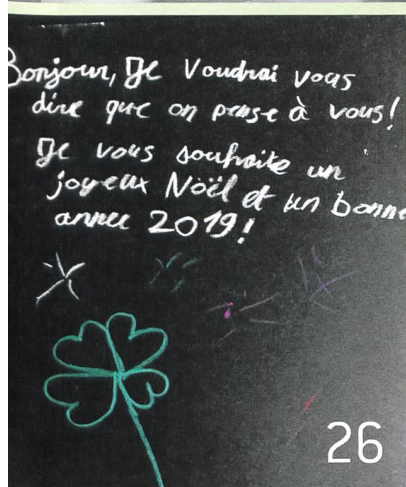 Bonjour, Je Voudrai vous
dire que on pense à vous!
Je vous souhaite un
joyeux Nöel et un bonne
annee 2019!
26